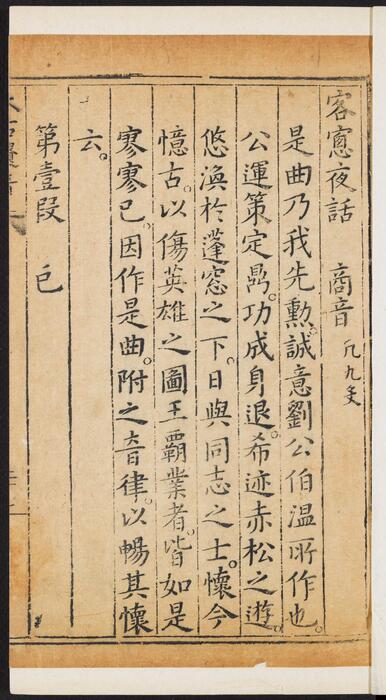 客窻夜話 商音 凡九夋
是曲乃我先勲。誠意劉公伯温所作也。
公運策定鼎。功成身退。希迹赤松之遊。
悠渙於蓬窓之下。日與同志之士。懷今
憶古。以傷英雄之圖王覇業者。皆如是
寥寥已。因作是曲。附之音律。以暢其懷
云。
第壹段